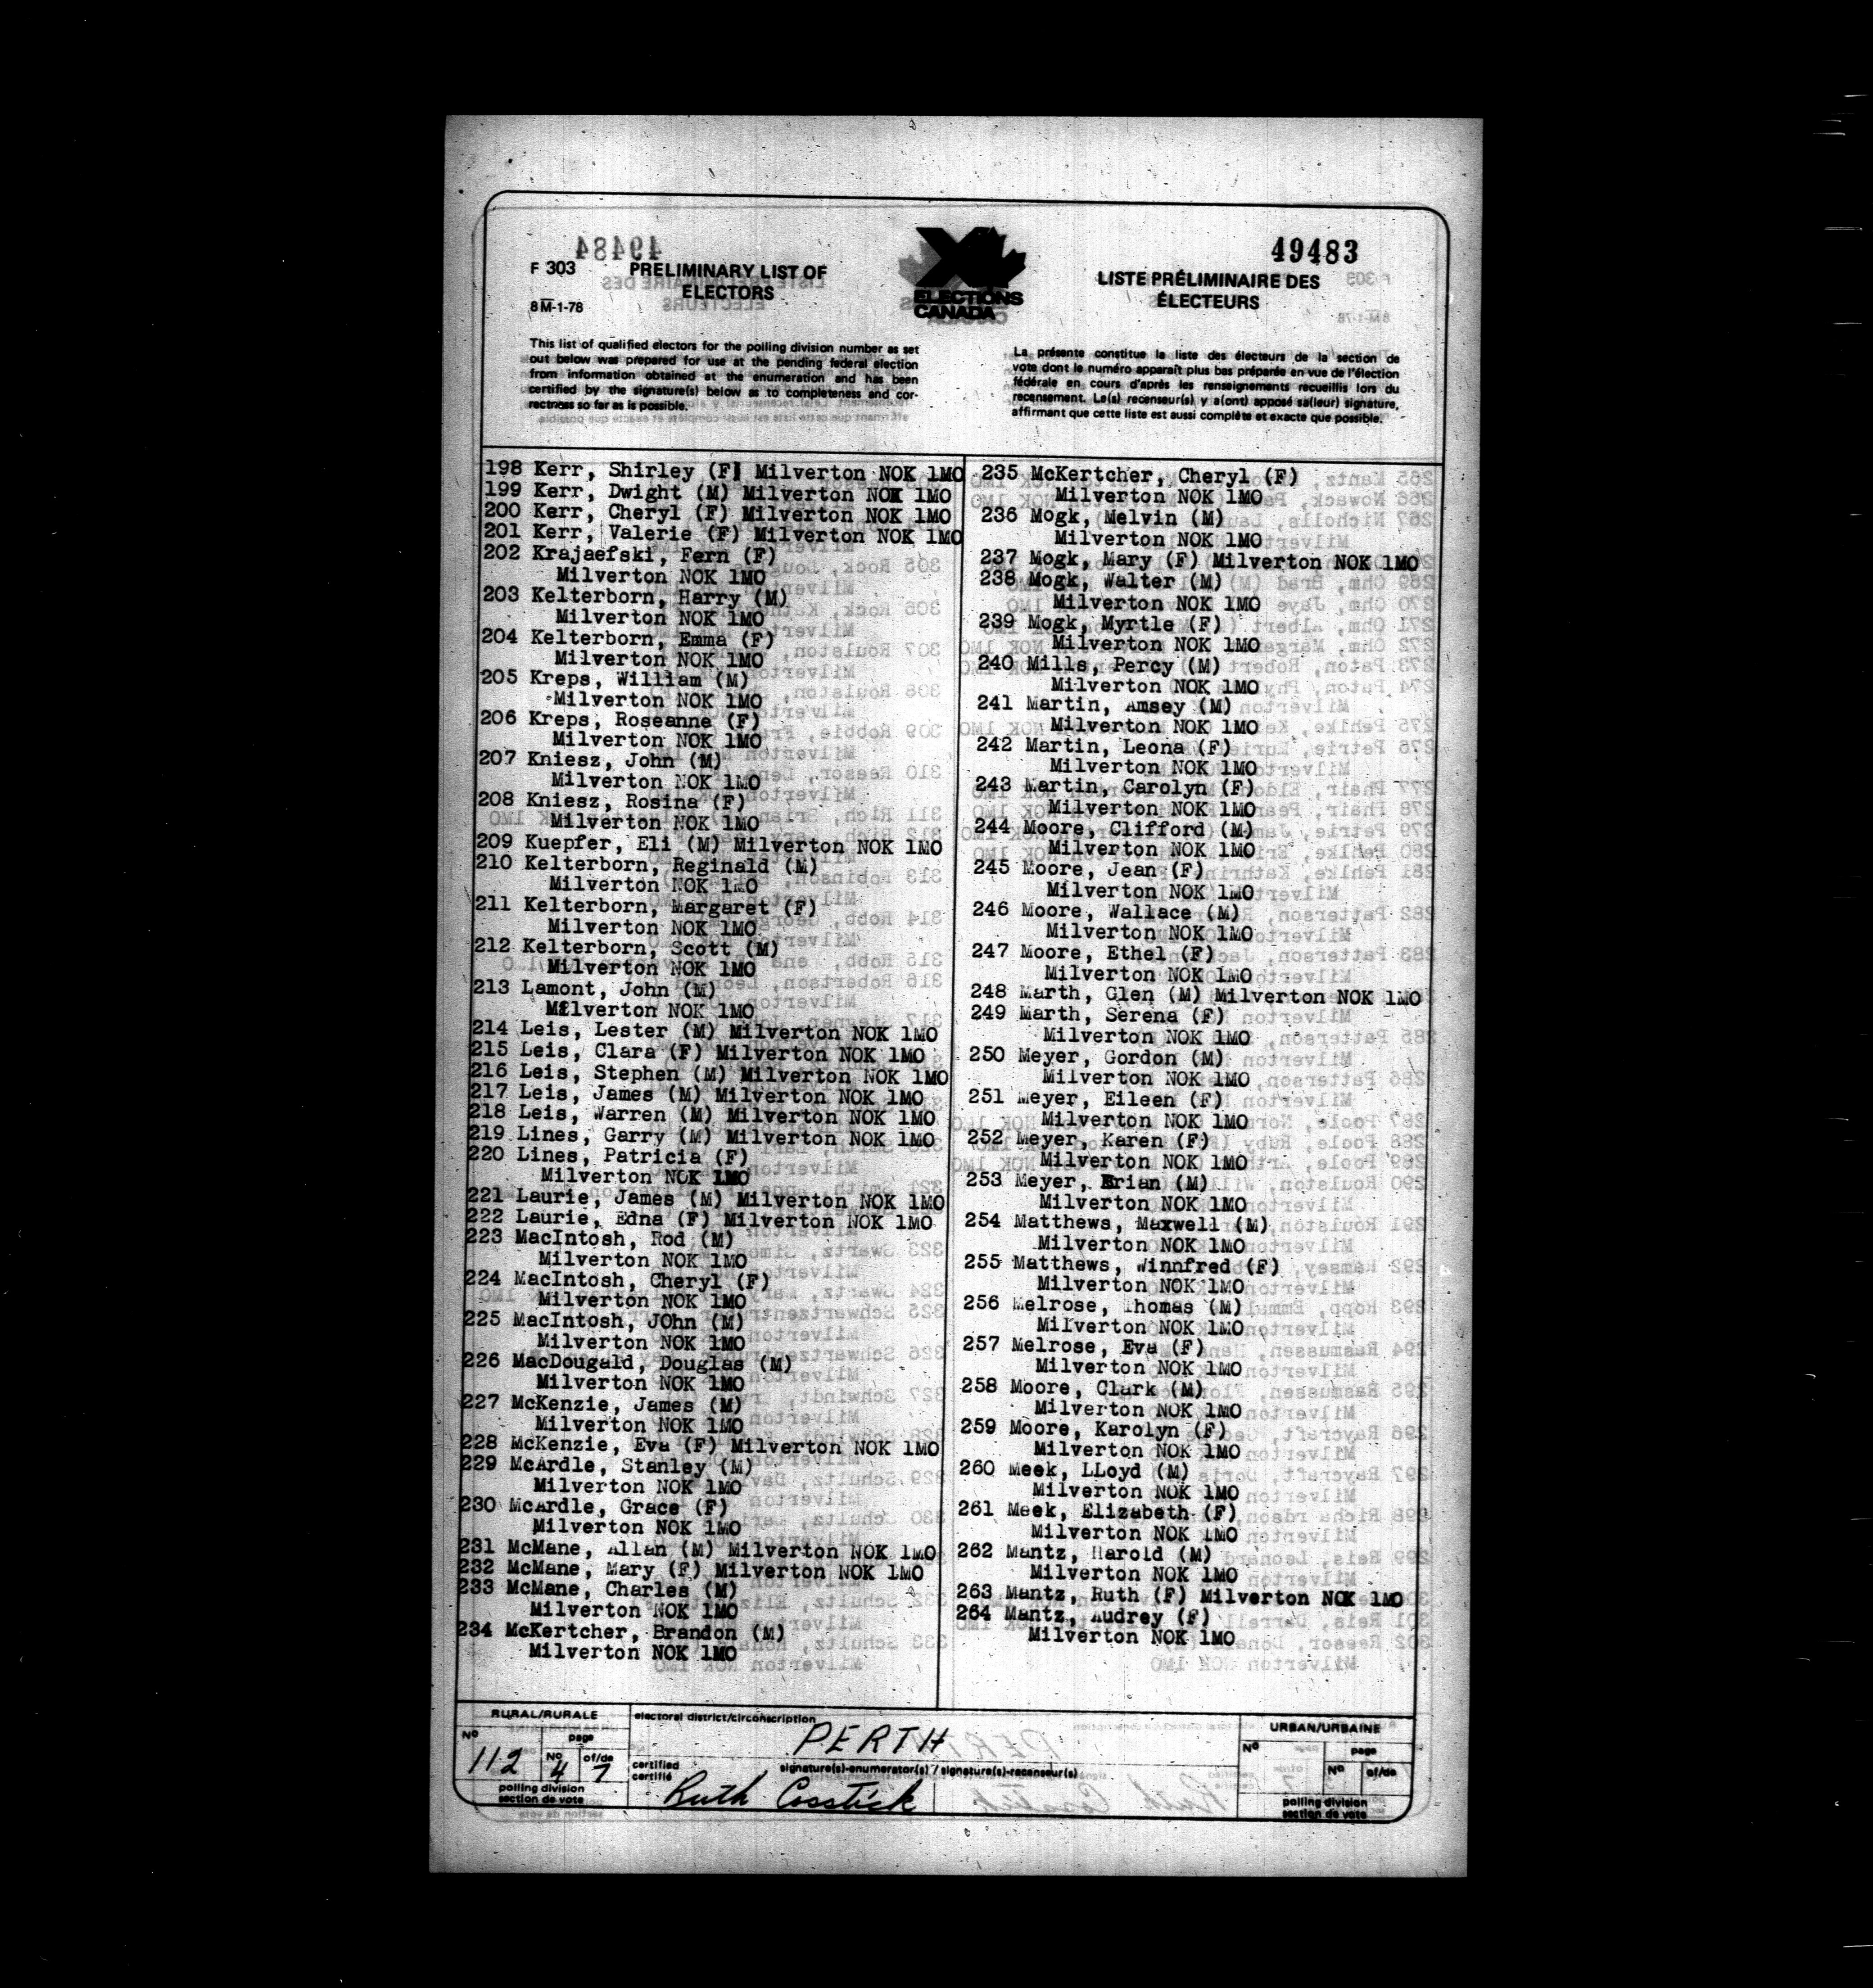 49483
F 303
PRELIMINARY LIST OF
ELECTORS
8 M-1-78
ELECTIONS
CANADA
LISTE PRÉLIMINAIRE DES
ÉLECTEURS
This list of qualified electors for the polling division number as set
out below was prepared for use at the pending federal election
from information obtained at the enumeration and has been
certified by the signature(s) below as to completeness and cor-
rectness so far as is possible.
La présente constitue la liste des électeurs de la section de
vote dont le numéro apparaît plus bas préparée en vue de l'élection
fédérale en cours d'après les renseignements recueillis lors du
recensement. Le(s) recenseur(s) y a(ont) apposé sa(leur) signature,
affirmant que cette liste est aussi complète et exacte que possible.
198 Kerr, Shirley (F) Milverton NOK 1MO
199 Kerr, Dwight (M) Milverton NOK 1MO
200 Kerr, Cheryl (F) Milverton NOK 1MO
201 Kerr, Valerie (F) Milverton NOK 1MO
202 Krajaefski, Fern (F)
Milverton NOK 1MO
203 Kelterborn, Harry (M)
Milverton NOK 1MO
204 Kelterborn, Emma (F)
Milverton NOK 1MO
205 Kreps, William (M)
Milverton NOK 1MO
206 Kreps, Roseanne (F)
Milverton NOK 1MO
207 Kniesz, John (M)
Milverton NOK 1MO
208 Kniesz, Rosina (F)
Milverton NOK 1MO
209 Kuepfer, Eli (M) Milverton NOK 1MO
210 Kelterborn, Reginald (M)
Milverton NOK 1MO
211 Kelterborn, Margaret (F)
Milverton NOK 1MO
212 Kelterborn, Scott (M)
Milverton NOK 1MO
213 Lamont, John (M)
Milverton NOK 1MO
214 Leis, Lester (M) Milverton NOK 1MO
215 Leis, Clara (F) Milverton NOK 1MO
216 Leis, Stephen (M) Milverton NOK 1MO
217 Leis, James (M) Milverton NOK 1MO
218 Leis, Warren (M) Milverton NOK 1MO
219 Lines, Garry (M) Milverton NOK 1MO
220 Lines, Patricia (F)
Milverton NOK 1MO
221 Laurie, James (M) Milverton NOK 1MO
222 Laurie, Edna (F) Milverton NOK 1MO
223 MacIntosh, Rod (M)
Milverton NOK 1MO
224 MacIntosh, Cheryl (F)
Milverton NOK 1MO
225 MacIntosh, JOhn (M)
Milverton NOK 1MO
226 MacDougald, Douglas (M)
Milverton NOK 1MO
227 McKenzie, James (M)
Milverton NOK 1MO
228 McKenzie, Eva (F) Milverton NOK 1MO
229 McArdle, Stanley (M)
Milverton NOK 1MO
230 McArdle, Grace (F)
Milverton NOK 1MO
231 McMane, Allan (M) Milverton NOK 1MO
232 McMane, Mary (F) Milverton NOK 1MO
233 McMane, Charles (M)
Milverton NOK 1MO
234 McKertcher, Brandon (M)
Milverton NOK 1MO
235 McKertcher, Cheryl (F)
Milverton NOK 1MO
236 Mogk, Melvin (M)
Milverton NOK 1MO
237 Mogk, Mary (F) Milverton NOK 1MO
238 Mogk, Walter (M)
Milverton NOK 1MO
239 Mogk, Myrtle (F)
Milverton NOK 1MO
240 Mills, Percy (M)
Milverton NOK 1MO
241 Martin, Amsey (M)
Milverton NOK 1MO
242 Martin, Leona (F)
Milverton NOK 1MO
243 Martin, Carolyn (F)
Milverton NOK 1MO
244 Moore, Clifford (M)
Milverton NOK 1MO
245 Moore, Jean (F)
Milverton NOK 1MO
246 Moore, Wallace (M)
Milverton NOK 1MO
247 Moore, Ethel (F)
Milverton NOK 1MO
248 Marth, Glen (M) Milverton NOK 1MO
249 Marth, Serena (F)
Milverton NOK 1MO
250 Meyer, Gordon (M)
Milverton NOK 1MO
251 Meyer, Eileen (F)
Milverton NOK 1MO
252 Meyer, Karen (F)
Milverton NOK 1MO
253 Meyer, Brian (M)
Milverton NOK 1MO
254 Matthews, Maxwell (M)
Milverton NOK 1MO
255 Matthews, Winnfred (F)
Milverton NOK 1MO
256 Melrose, Thomas (M)
Milverton NOK 1MO
257 Melrose, Eva (F)
Milverton NOK 1MO
258 Moore, Clark (M)
Milverton NOK 1MO
259 Moore, Karolyn (F)
Milverton NOK 1MO
260 Meek, LLoyd (M)
Milverton NOK 1MO
261 Meek, Elizabeth (F)
Milverton NOK 1MO
262 Mantz, Harold (M)
Milverton NOK 1MO
263 Mantz, Ruth (F) Milverton NOK 1MO
264 Mantz, Audrey (F)
Milverton NOK 1MO
RURAL/RURALE
No 112
page
No 4 of/de 7
polling division
section de vote
electoral district/circonscription
PERTH
certified
certifié
signature(s)-enumerator(s) / signature(s)-recenseur(s)
Ruth Cosstick
URBAN/URBAINE
No
page
No of/de
polling division
section de vote